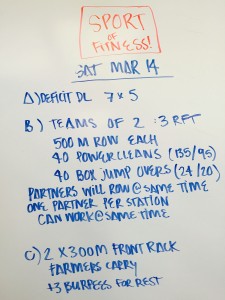 SPORT
OF
FITNESS!
SAT MAR 14
A) DEFICIT DL 7x5
B) TEAMS OF 2 : 3 RFT
500 M ROW EACH
40 POWER CLEANS (135/95)
40 BOX JUMP OVERS (24/20)
PARTNERS WILL ROW @ SAME TIME
ONE PARTNER PER STATION
CAN WORK @ SAME TIME
C) 2 X 300M FRONT RACK
FARMERS CARRY
+3 BURPEES FOR REST